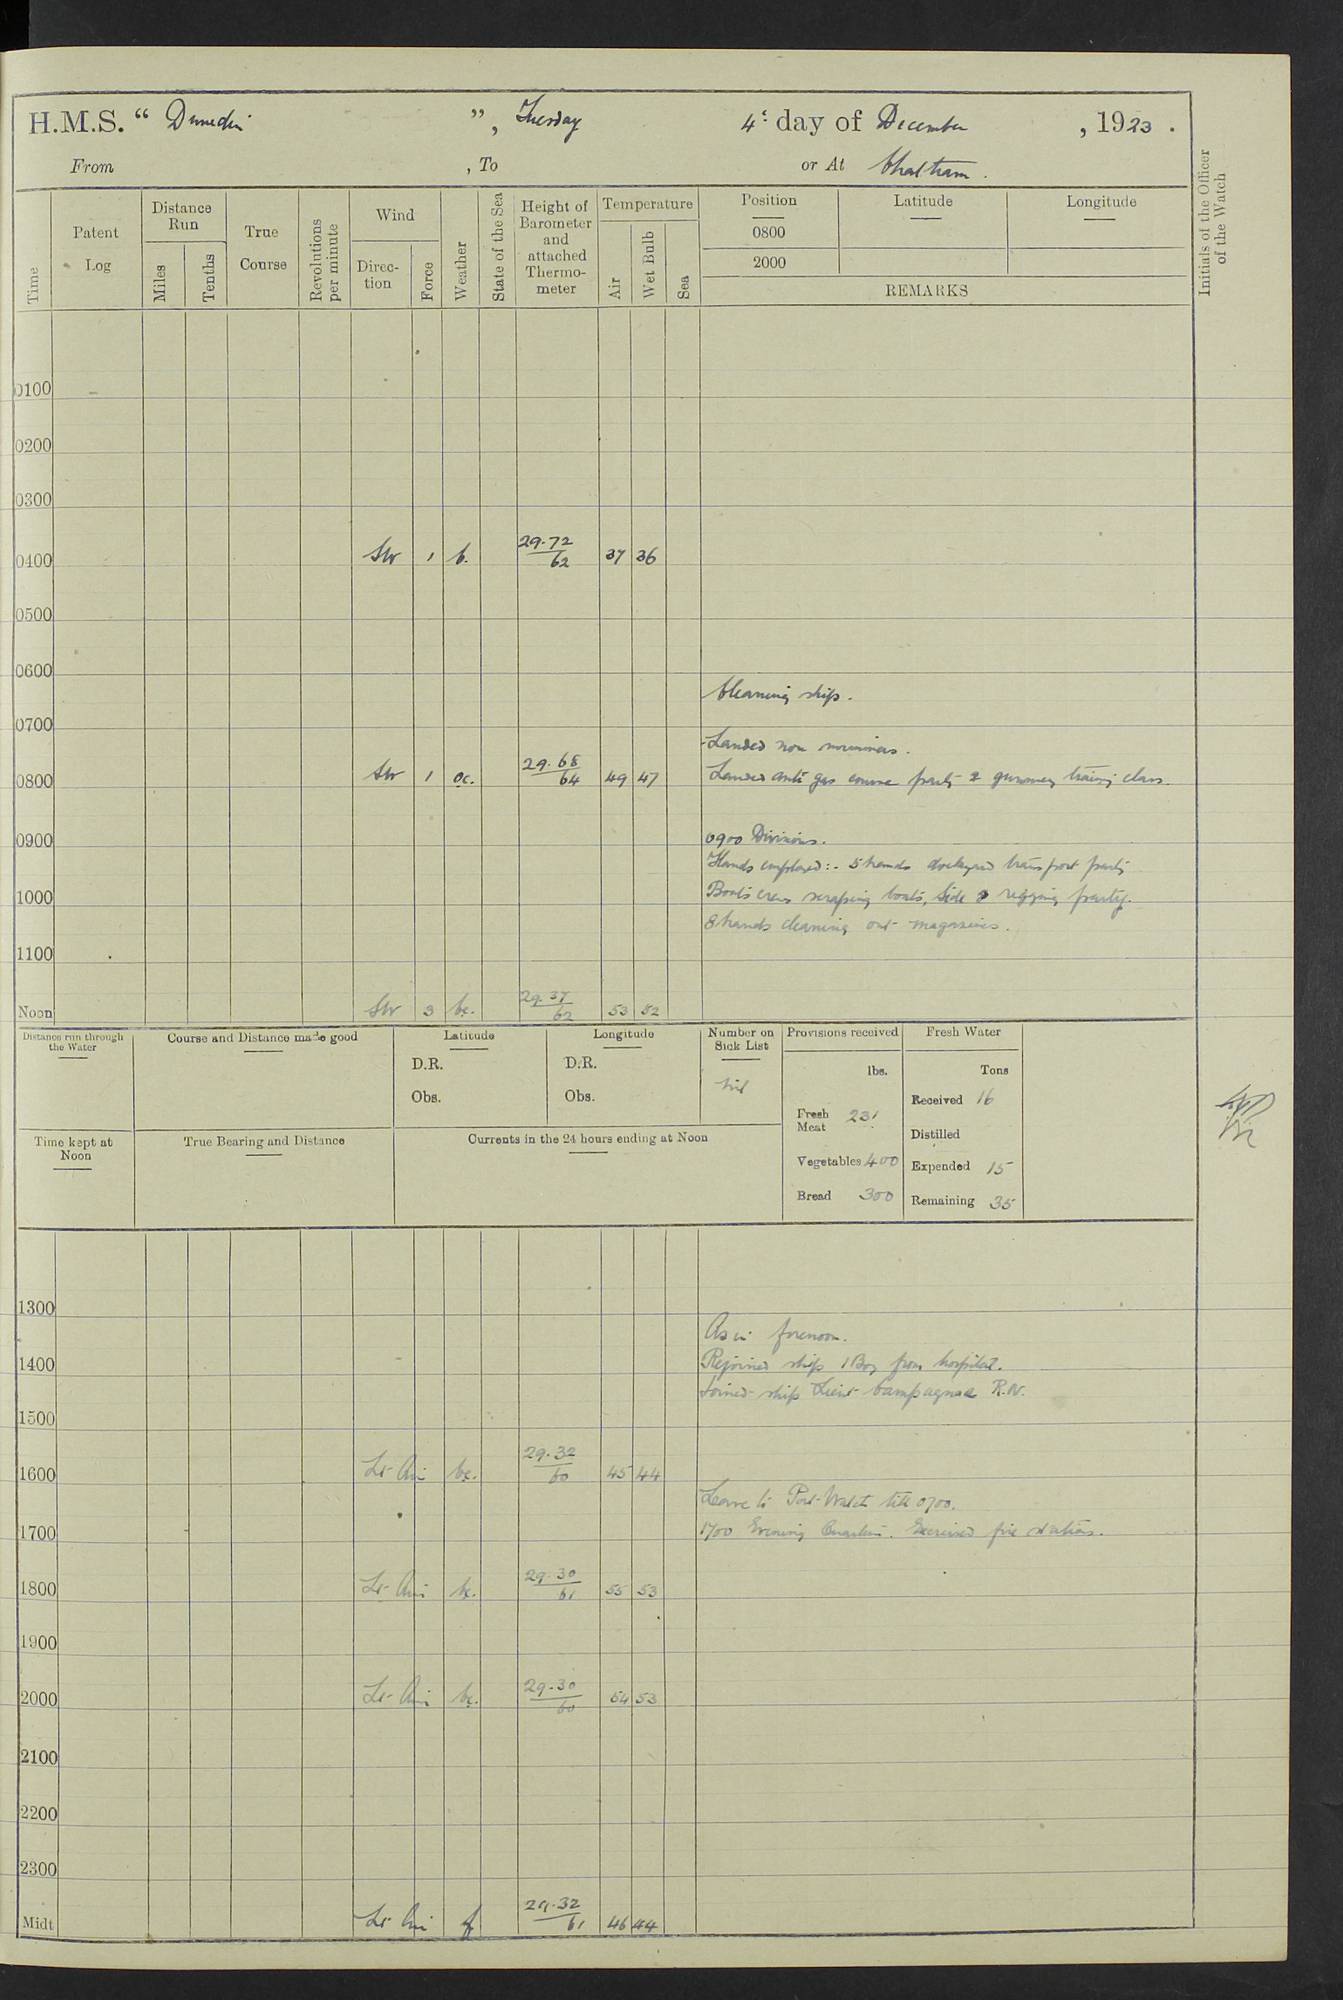 H.M.S. " Dunedin ", Tuesday 4th day of December, 1923.
From , To or At Chatham.
Time
Patent Log
Distance Run
Miles
Tenths
True Course
Revolutions per minute
Wind
Direction
Force
Weather
State of the Sea
Height of Barometer and attached Thermometer
Temperature
Air
Wet Bulb
Sea
Position
0800
2000
Latitude
Longitude
REMARKS
Initials of the Officer of the Watch
0100
0200
0300
0400 SW 1 b. 29.72/62 37 36
0500
0600
Cleaning ship.
0700
Landed non swimmers.
0800 SW 1 oc. 29.68/64 49 47 Landed anti gas course party & gunnery training class.
0900 0900 Divisions.
Hands employed:- 5 hands dockyard transport party
1000 Boats crews scraping boats, side & rigging party.
8 hands cleaning out magazines.
1100
Noon SW 3 bc. 29.37/62 53 52
Distance run through the Water
Course and Distance made good
Latitude
D.R.
Obs.
Longitude
D.R.
Obs.
Number on Sick List
Nil
Provisions received
lbs.
Fresh Meat 231
Vegetables 400
Bread 300
Fresh Water
Tons
Received 16
Distilled
Expended 15
Remaining 35
Time kept at Noon
True Bearing and Distance
Currents in the 24 hours ending at Noon
1300
As in forenoon.
1400 Rejoined ship 1 Boy from hospital.
Joined ship Lieut Campagnac R.N.
1500
1600 Lt Air bc. 29.32/60 45 44
Leave to Port Watch till 0700.
1700 1700 Evening Quarters. Exercised fire stations.
1800 Lt Air bc. 29.30/61 55 53
1900
2000 Lt Air bc. 29.30/60 54 53
2100
2200
2300
Midt Lt Air f 29.32/61 46 44